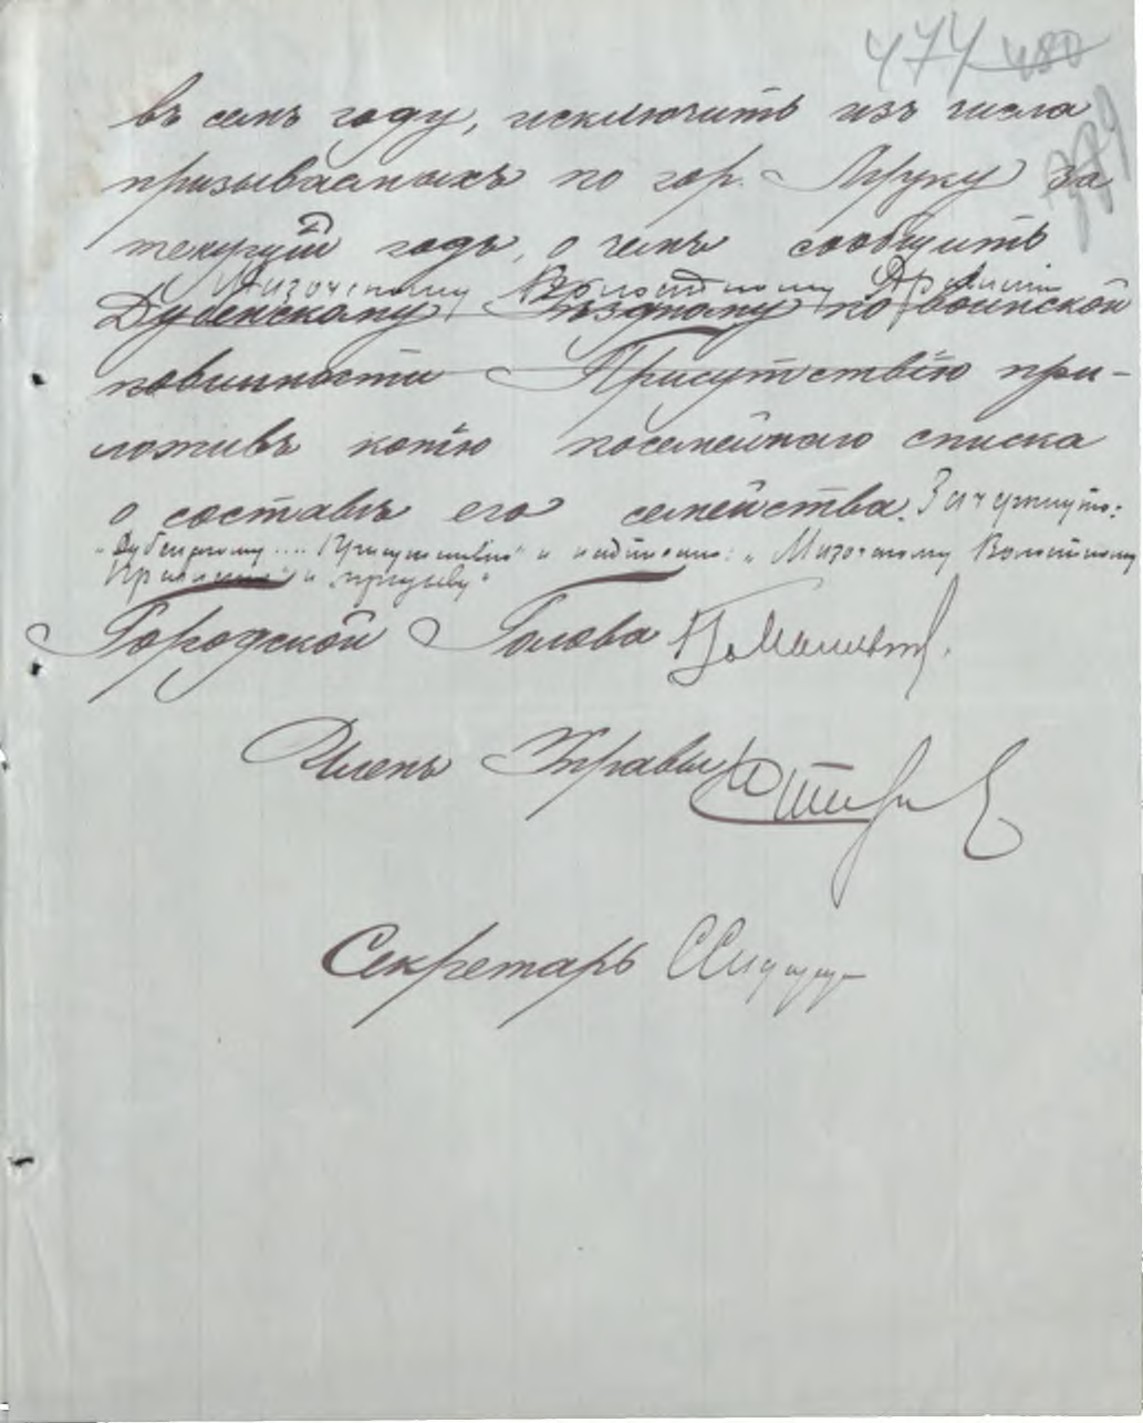 474 480
въ семъ году, исключить изъ числа
призываемыхъ по гор. Луцку за
текущій годъ, о чемъ сообщить
Мизочскому Волостному Правленію
Дубенскому Уѣздному по воинской
повинности Присутствію при-
ложивъ копію посемейнаго списка
о составѣ его семейства. Зачеркнуто:
"Дубенскому .... Присутствію" и надписано: "Мизочскому Волостному
Правленію" и
Городской Голова
Членъ Управы
Секретарь